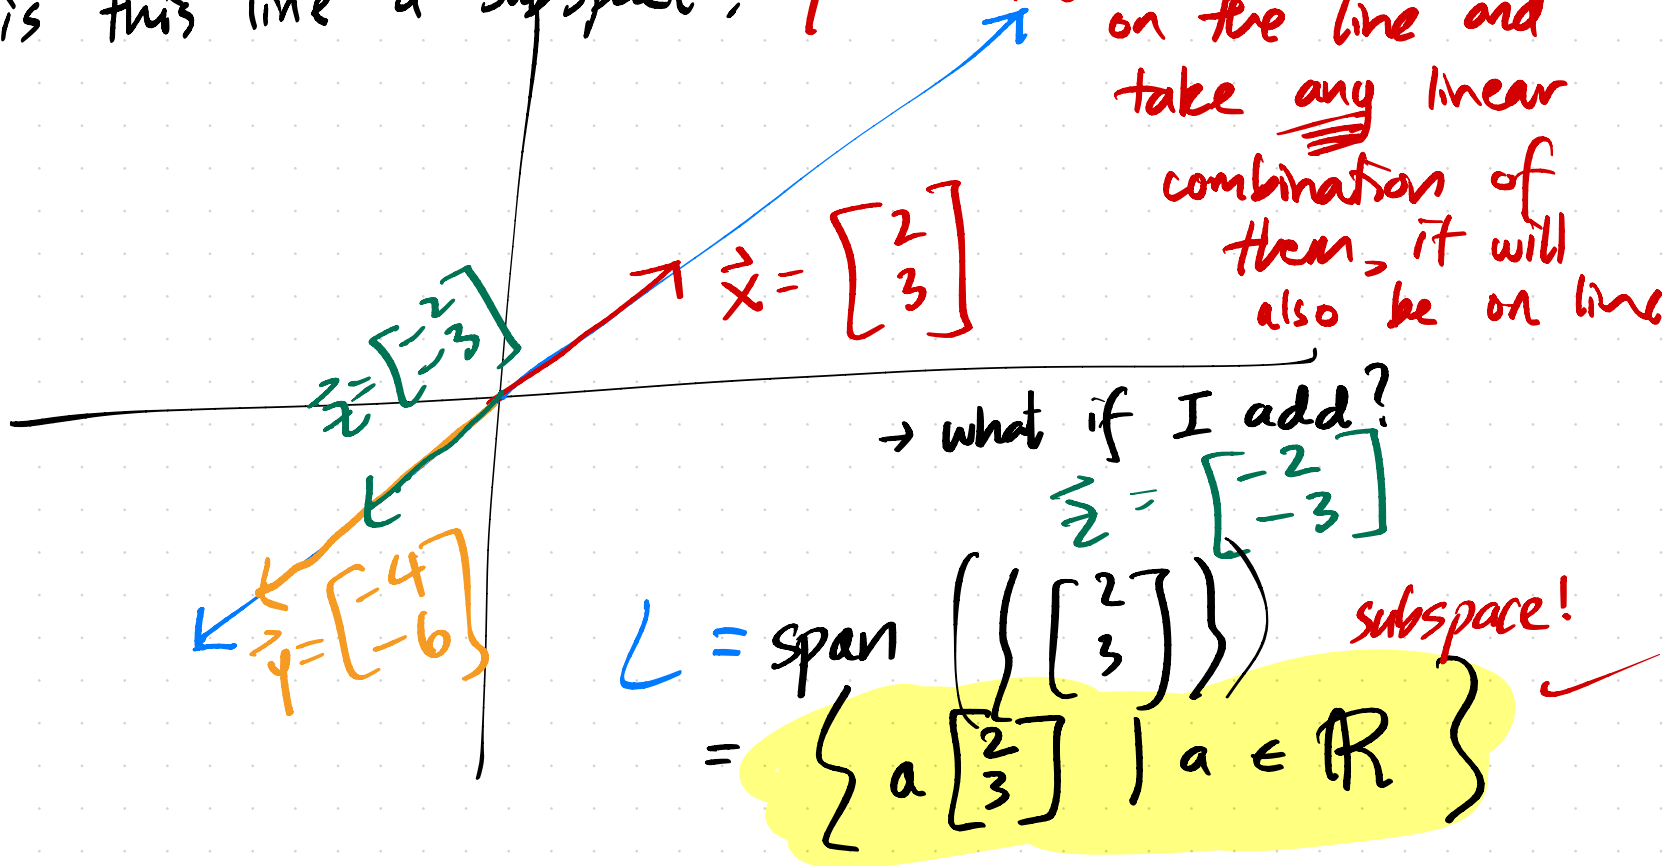 is this line a subspace?
on the line and
take any linear
combination of
them, it will
also be on line
x⃗ = [2 3]
z⃗ = [-2 -3]
→ what if I add?
z⃗ = [-2 -3]
y⃗ = [-4 -6]
L = span ({[2 3]})
subspace! ✓
= {a [2 3] | a ∈ ℝ}